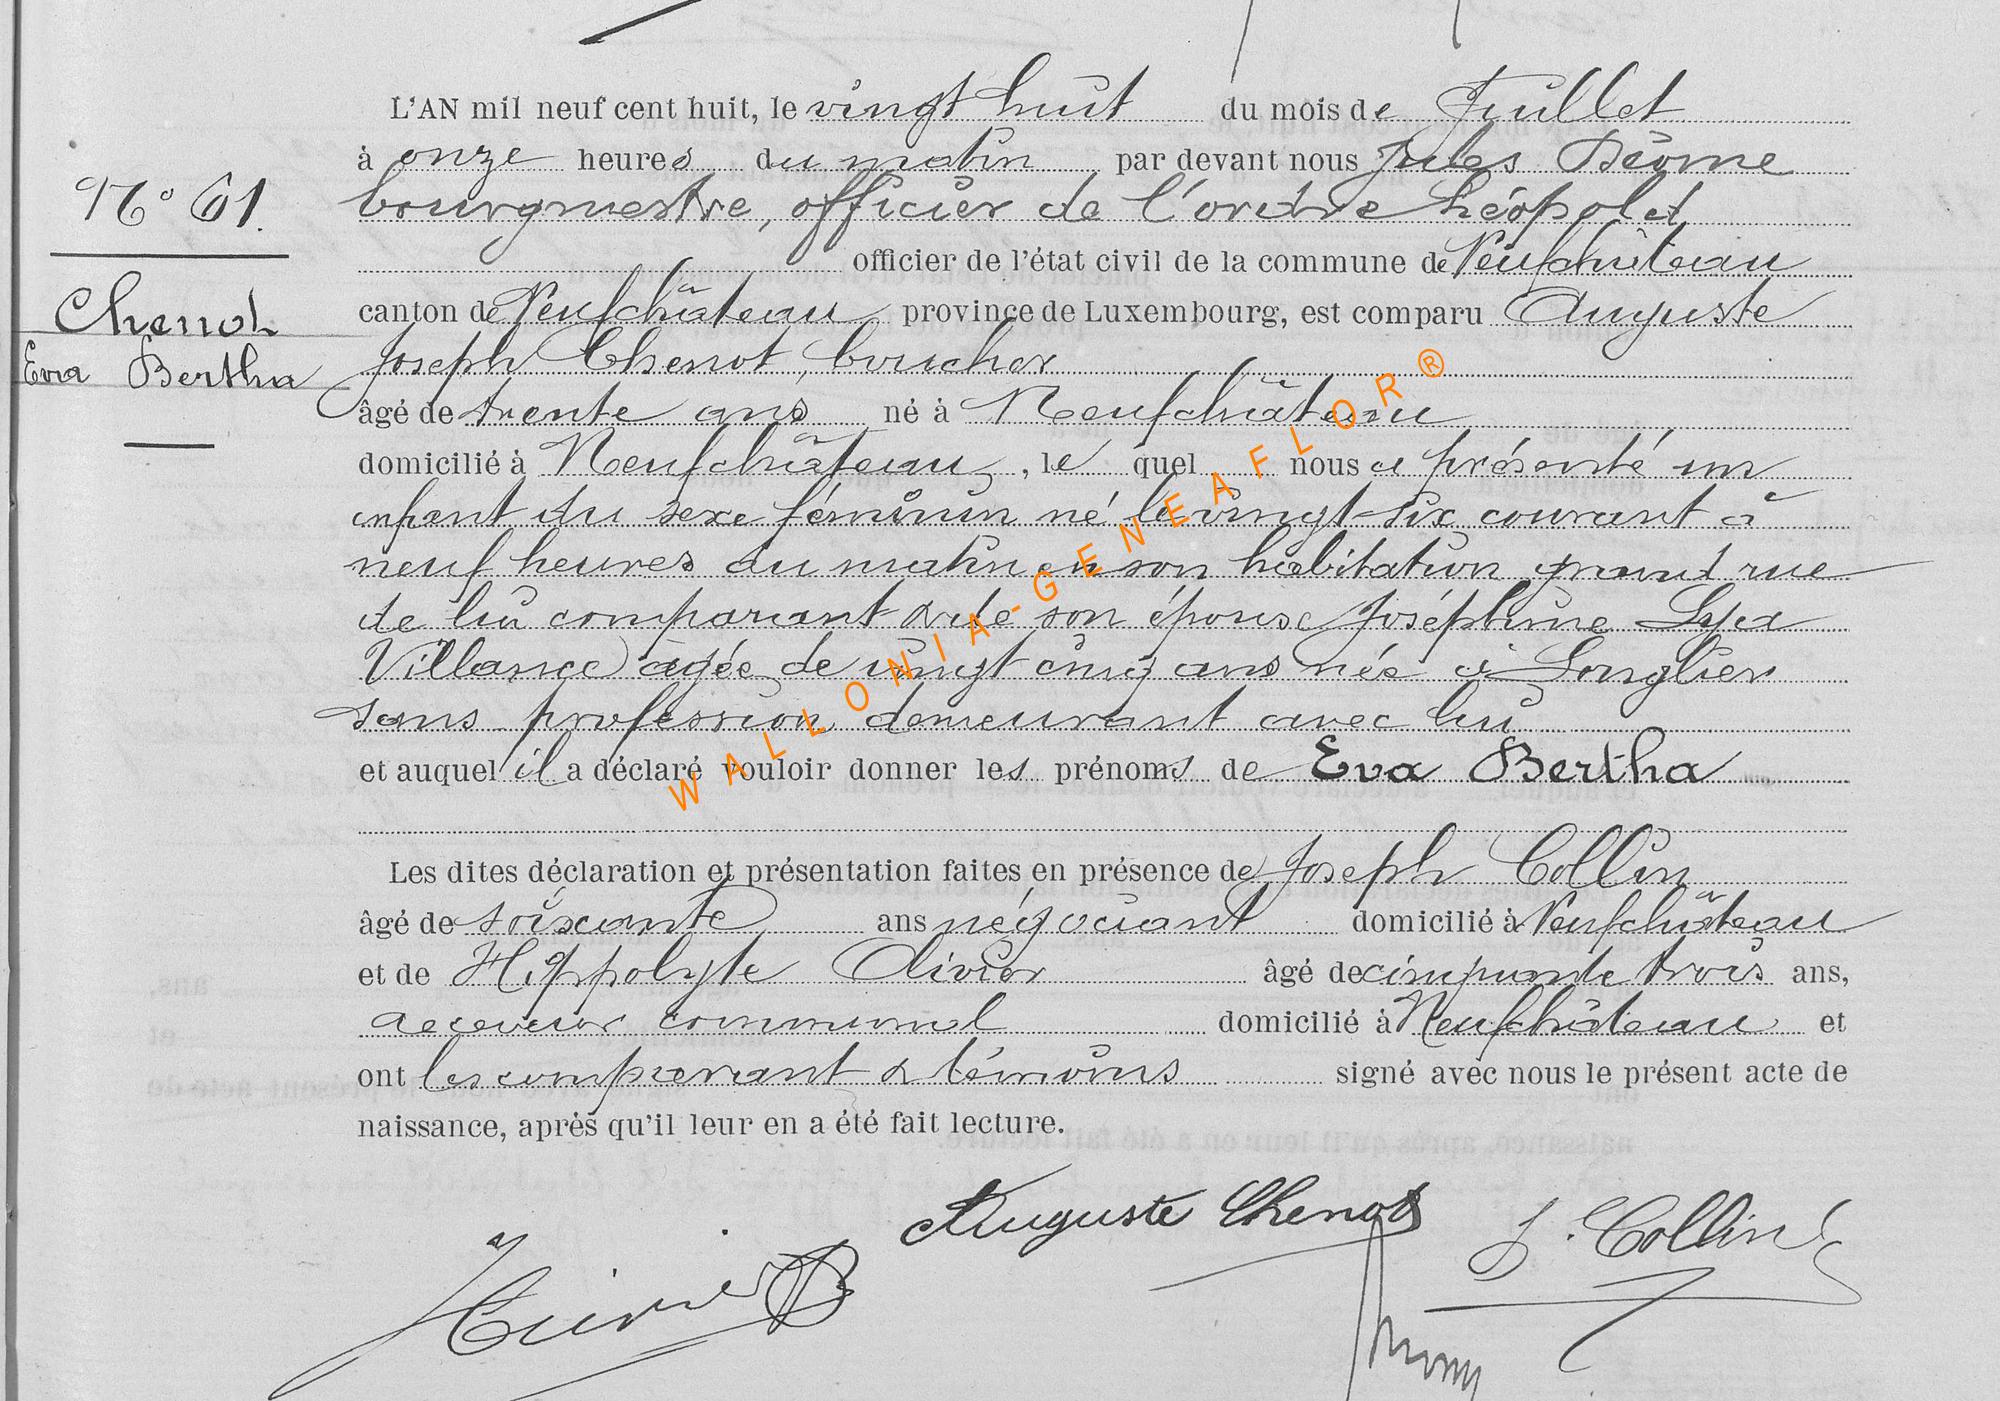 L'AN mil neuf cent huit, le vingt huit du mois de Juillet
à onze heures du matin par devant nous Jules
bourgmestre, officier de l'ordre Léopold
officier de l'état civil de la commune de Neufchâteau
canton de Neufchâteau province de Luxembourg, est comparu Auguste
N° 61.
Chenot
Eva Bertha
Joseph Chenot, boucher
âgé de trente ans né à Neufchâteau
domicilié à Neufchâteau, le quel nous a présenté un
enfant du sexe féminin né le vingt-six courant à
neuf heures du matin en son habitation grand rue
de lui comparant & de son épouse Joséphine
Villance âgée de vingt cinq ans née à Longlier
sans profession demeurant avec lui
et auquel il a déclaré vouloir donner les prénoms de Eva Bertha
Les dites déclaration et présentation faites en présence de Joseph Collin
âgé de soixante ans négociant domicilié à Neufchâteau
et de Hippolyte Olivier âgé de cinquante trois ans,
receveur communal domicilié à Neufchâteau et
ont les comparant & témoins signé avec nous le présent acte de
naissance, après qu'il leur en a été fait lecture.
Auguste Chenot
J. Collin
WALLONIA-GENEAFLOR®